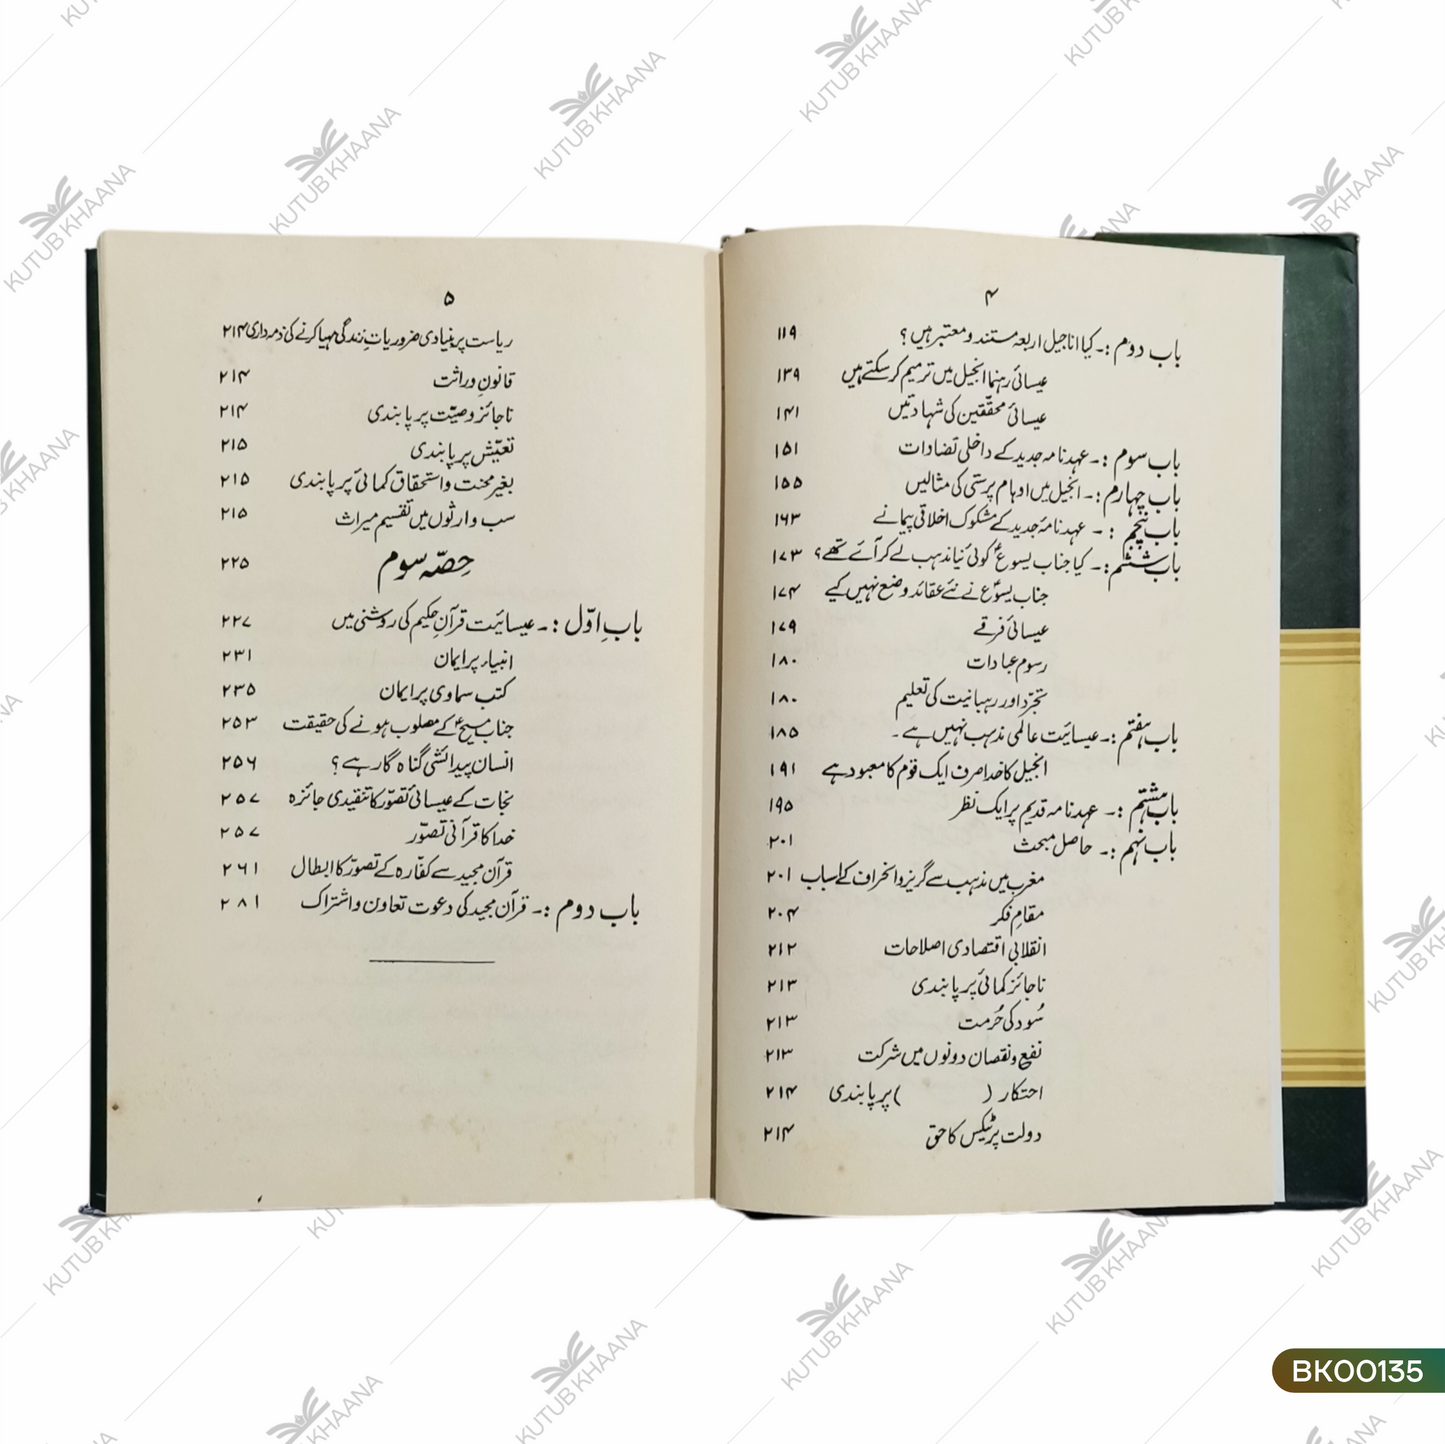 ۴
باب دوم :۔ کیا اناجیل اربعہ مستند و معتبر ہیں؟ ۱۱۹
عیسائی رہنما انجیل میں ترمیم کر سکتے ہیں ۱۳۹
عیسائی محققین کی شہادتیں ۱۴۱
باب سوم :۔ عہد نامہ جدید کے داخلی تضادات ۱۵۱
باب چہارم :۔ انجیل میں اوہام پرستی کی مثالیں ۱۵۵
باب پنجم :۔ عہد نامۂ جدید کے مشکوک اخلاقی پیمانے ۱۶۳
باب ششم :۔ کیا جناب یسوعؑ کوئی نیا مذہب لے کر آئے تھے؟ ۱۷۳
جناب یسوعؑ نے نئے عقائد وضع نہیں کیے ۱۷۴
عیسائی فرقے ۱۷۹
رسوم عبادات ۱۸۰
تجرّد اور رہبانیت کی تعلیم ۱۸۰
باب ہفتم :۔ عیسائیت عالمی مذہب نہیں ہے۔ ۱۸۵
انجیل کا خدا صرف ایک قوم کا معبود ہے ۱۹۱
باب ہشتم :۔ عہد نامہ قدیم پر ایک نظر ۱۹۵
باب نہم :۔ حاصل مبحث ۲۰۱
مغرب میں مذہب سے گریز و انحراف کے اسباب ۲۰۱
مقامِ فکر ۲۰۴
انقلابی اقتصادی اصلاحات ۲۱۲
ناجائز کمائی پر پابندی ۲۱۳
سُود کی حُرمت ۲۱۳
نفع و نقصان دونوں میں شرکت ۲۱۳
احتکار ( ) پر پابندی ۲۱۴
دولت پر ٹیکس کا حق ۲۱۴
۵
ریاست پر بنیادی ضروریاتِ زندگی مہیا کرنے کی ذمہ داری ۲۱۴
قانونِ وراثت ۲۱۴
ناجائز وصیّت پر پابندی ۲۱۴
تعیّش پر پابندی ۲۱۵
بغیر محنت و استحقاق کمائی پر پابندی ۲۱۵
سب وارثوں میں تقسیم میراث ۲۱۵
حِصّہ سوم ۲۲۵
بابِ اوّل :۔ عیسائیت قرآنِ حکیم کی روشنی میں ۲۲۷
انبیاء پر ایمان ۲۳۱
کتب سماوی پر ایمان ۲۳۵
جناب مسیحؑ کے مصلوب ہونے کی حقیقت ۲۵۳
انسان پیدائشی گناہ گار ہے؟ ۲۵۶
نجات کے عیسائی تصوّر کا تنقیدی جائزہ ۲۵۷
خدا کا قرآنی تصوّر ۲۵۷
قرآن مجید سے کفّارہ کے تصوّر کا ابطال ۲۶۱
باب دوم :۔ قرآن مجید کی دعوت تعاون و اشتراک ۲۸۱
KUTUB KHAANA
BK00135